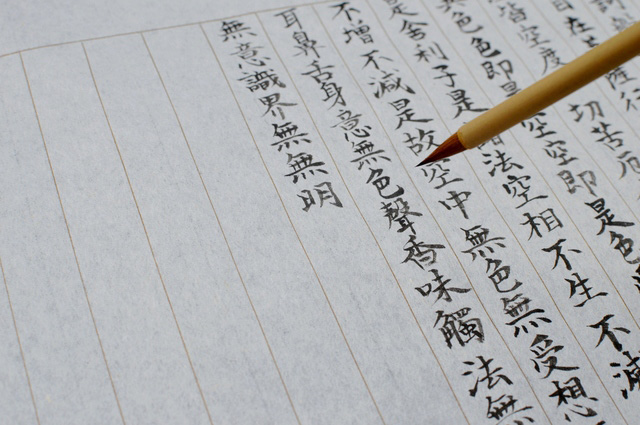 在薩行
皆空度切苦厄
色色即是空空即是色
是舍利子是諸法空相不生不滅
不增不減是故空中無色無受想
耳鼻舌身意無色聲香味觸法無
無意識界無無明